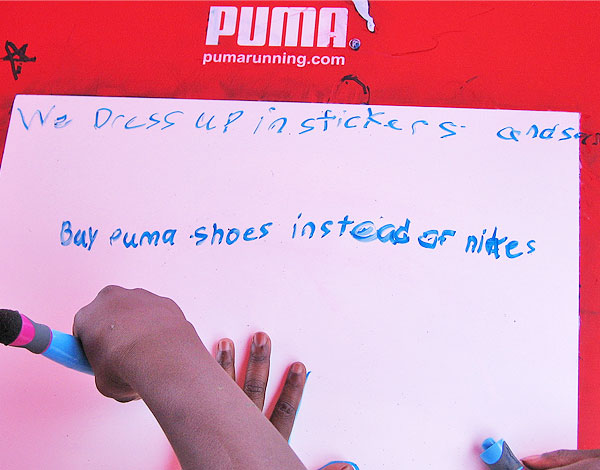 PUMA
pumarunning.com
We Dress up in stickers
Buy puma shoes instead of nikes